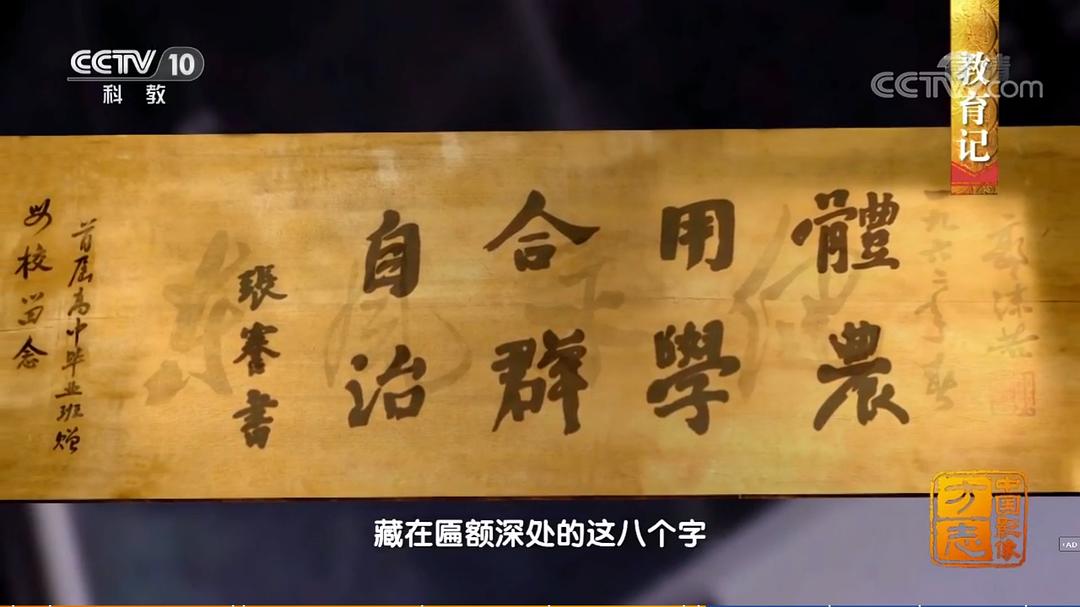 CCTV 10
科教
CCTV.com
教育记
體農
用學
合群
自治
張謇書
首届高中毕业班赠
母校留念
一九六二年
郭沫若
藏在匾额深处的这八个字
中国影像
方志
AD